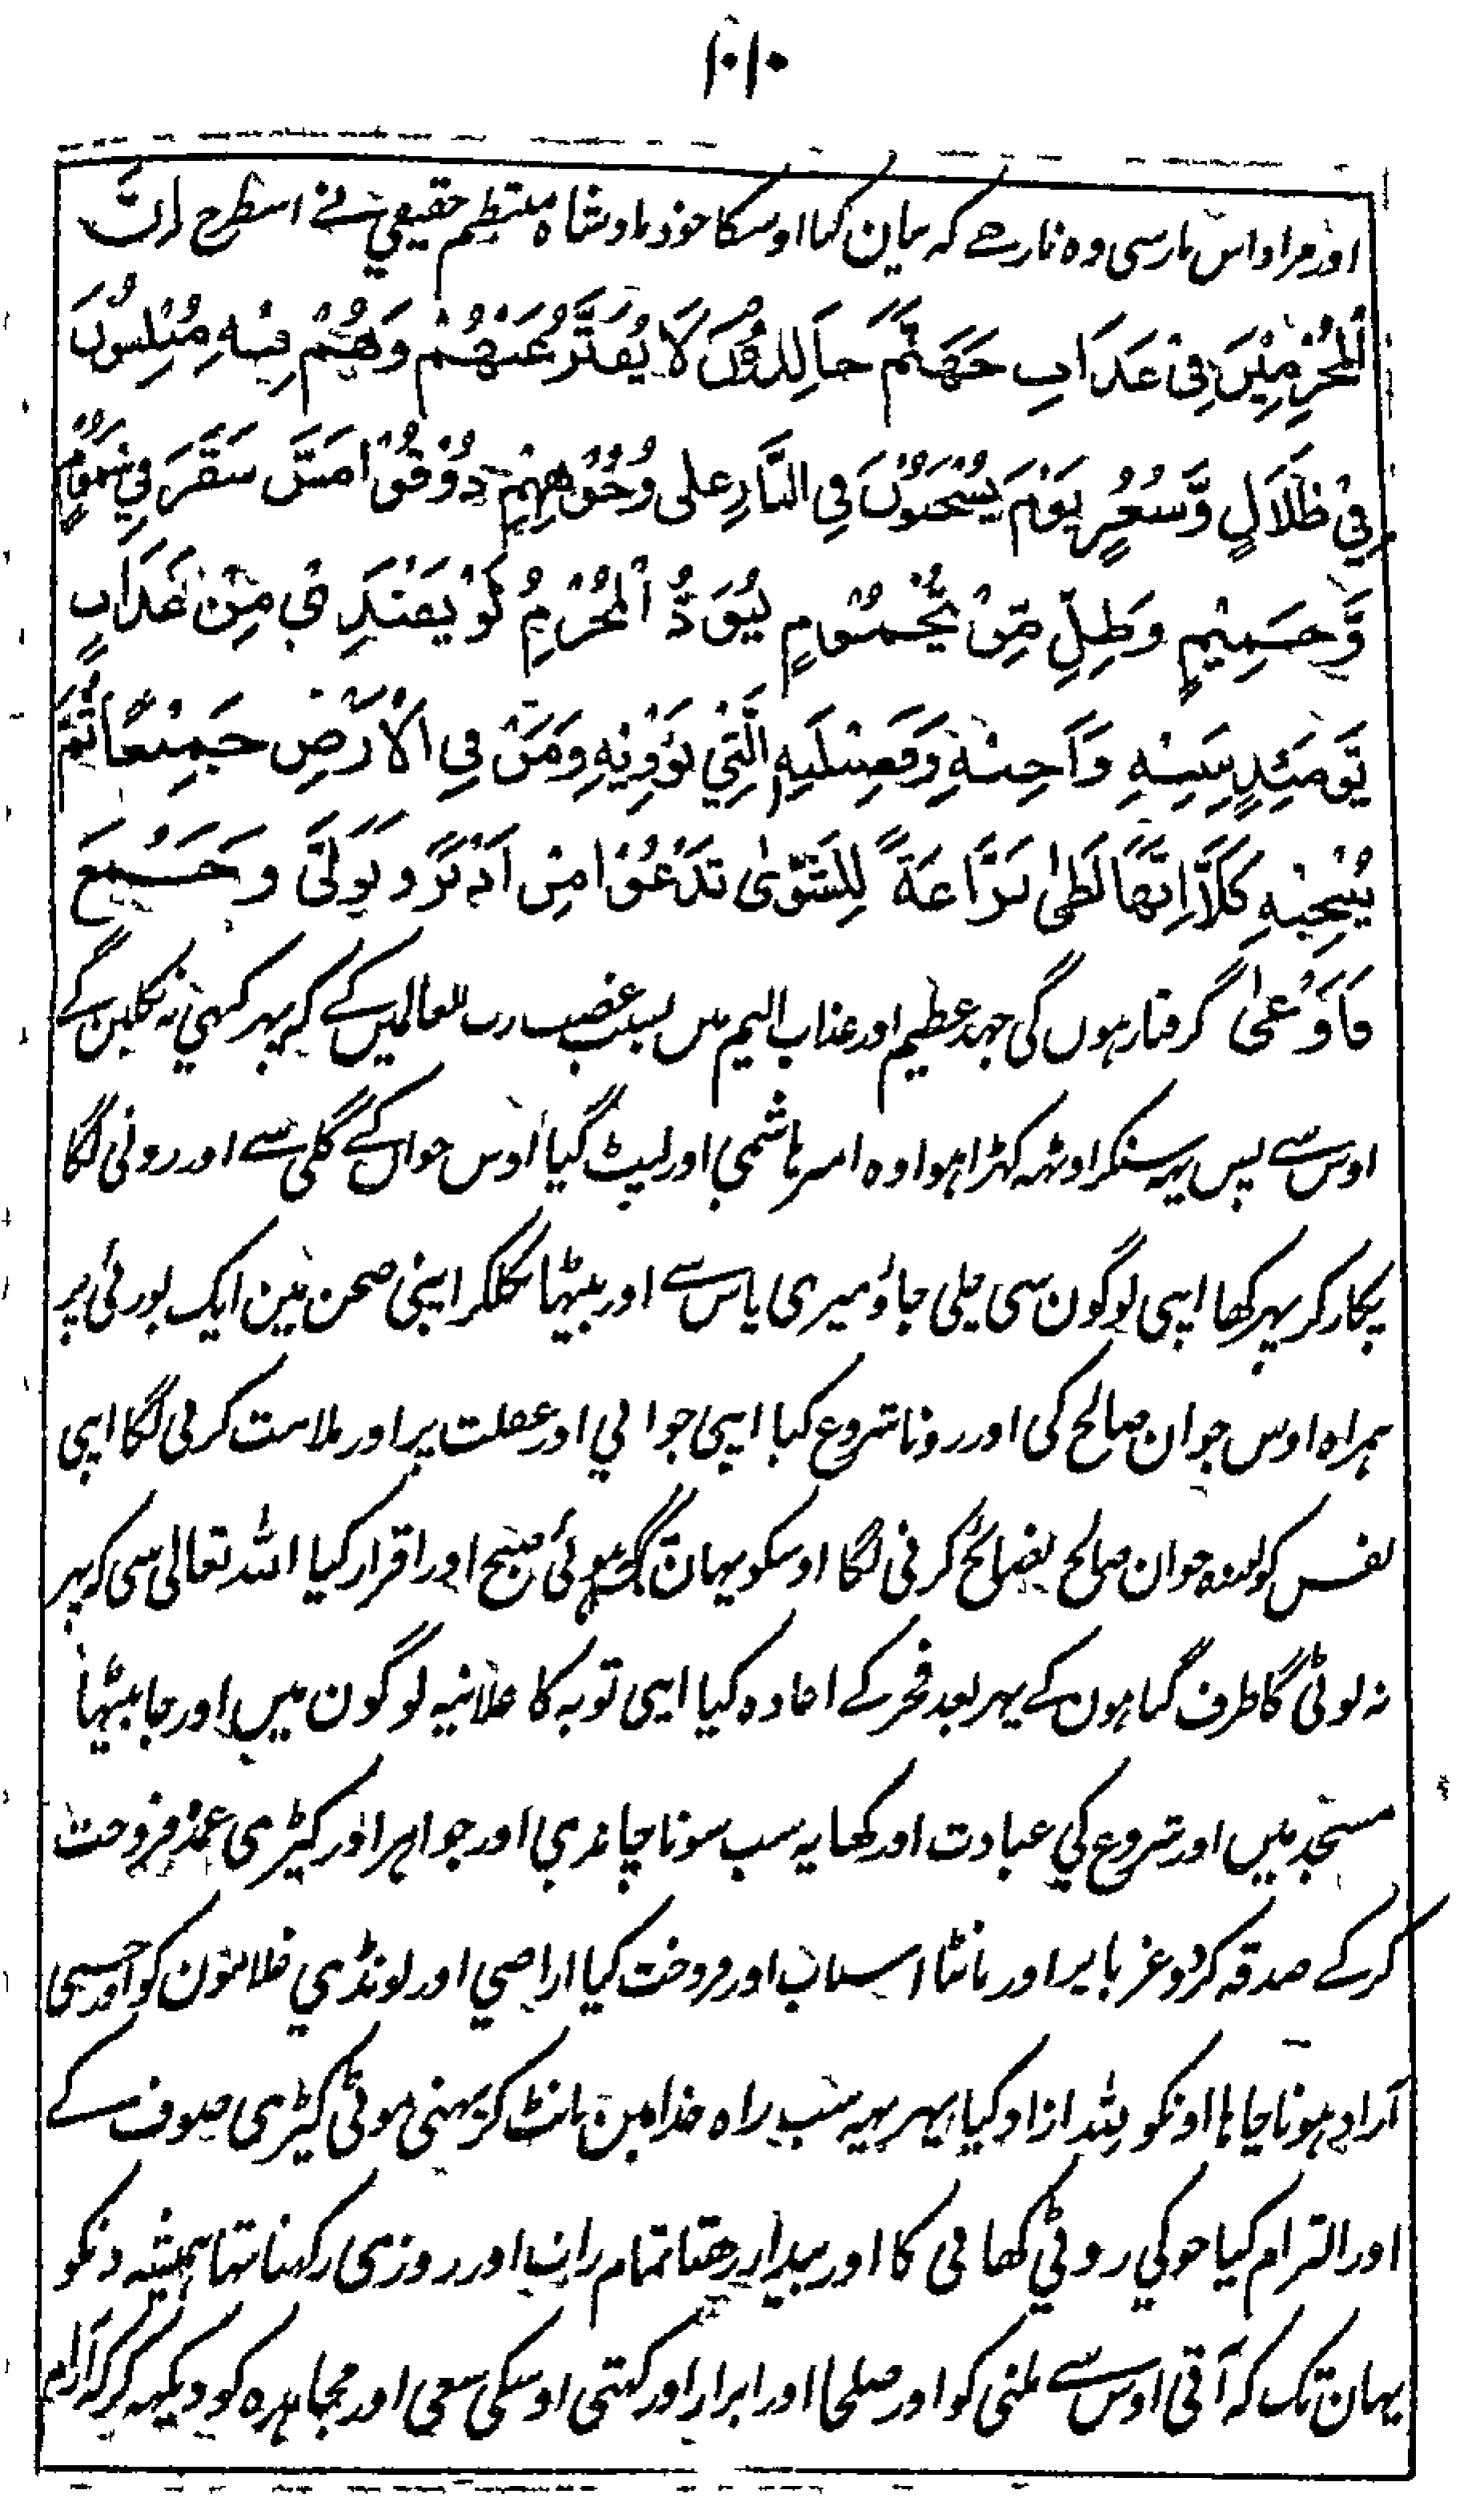 ۱۰۱۰
اور مراد اس نار سی وہ نار ہے کہ بیان کیا اوسکا خود بادشاہ منتظم حقیقی نے اسطرح
اَلْمُجْرِمِیْنَ فِیْ عَذَابِ جَهَنَّمَ خَالِدُوْنَ لَا یُفَتَّرُ عَنْهُمْ وَهُمْ فِیْهِ مُبْلِسُوْنَ
فِیْ ضَلَالٍ وَّسُعُرٍ یَوْمَ یُسْحَبُوْنَ فِی النَّارِ عَلٰی وُجُوْهِهِمْ ذُوْقُوْا مَسَّ سَقَرَ فِیْ سَمُوْمٍ
وَّحَمِیْمٍ وَظِلٍّ مِّنْ یَّحْمُوْمٍ یُوَدُّ الْمُجْرِمُ لَوْ یَفْتَدِیْ مِنْ عَذَابِ
یَّوْمَئِذٍ بِبَنِیْهِ وَاَخِیْهِ وَفَصِیْلَتِهِ الَّتِیْ تُؤْوِیْهِ وَمَنْ فِی الْاَرْضِ جَمِیْعًا ثُمَّ
یُنْجِیْهِ كَلَّا اِنَّهَا لَظٰی نَزَّاعَةً لِّلشَّوٰی تَدْعُوْا مَنْ اَدْبَرَ وَتَوَلّٰی وَجَمَعَ
فَاَوْعٰی گرفتار ہوں گی جہد عظیم اور عذاب الیم میں بسبب غضب رب العالمیں کے کہ پہر کبھی نہ نکلیں گے
اوس سے پس یہ سنکر اوٹھہ کہڑا ہوا وہ امیر ہاشمی اور لپٹ گیا اوس جواں کے گلی سے اور رونی لگا
پکار کر پہر کہا اپنی لوگوں سی چلی جاؤ میری پاس سے اور بیٹھا نکلکر اپنی صحن میں ایک بوریٔ پر
ہمراہ اوس جوان صالح کی اور رونا شروع کیا اپنی جوانی اور غفلت پر اور ملامت کرنی لگا اپنی
نفس کو جوان صالح نصائح کرنی لگا اوسکو یہان ہوئی صبح اور اقرار کیا اللہ تعالی سی کہ پہر
نہ لوٹی گا طرف گناہوں کے پہر بعد فجر کے اعادہ کیا اپنی توبہ کا علانیہ لوگون میں اور جا بیٹھا
مسجد میں اور شروع کی عبادت اور کہا یہ سب سونا چاندی اور جواہر اور کپڑی عمدہ فروخت
کر کے صدقہ کردو غربا پر اور بانٹا اسباب اور فروخت کیا اراضی اور لونڈی غلامون کو اور جسی
آزاد ہونا چاہا اونکو للہ ازاد کیا پہر یہ سب راہ خدا مین بانٹ کر پہنی موٹی کپڑی صوف کے
اور التزام کیا جو کی روٹی کھانی کا اور بیدار رہتا تمام رات اور روزی رکہنا تہا ہمیشہ دنکو
یہان تک کہ آتی اوس سے ملنی کو اور صلحا اور ابرار اور کہتی اوسکی سعی اور مجاہدہ کو دیکہہ کر کہ آرام